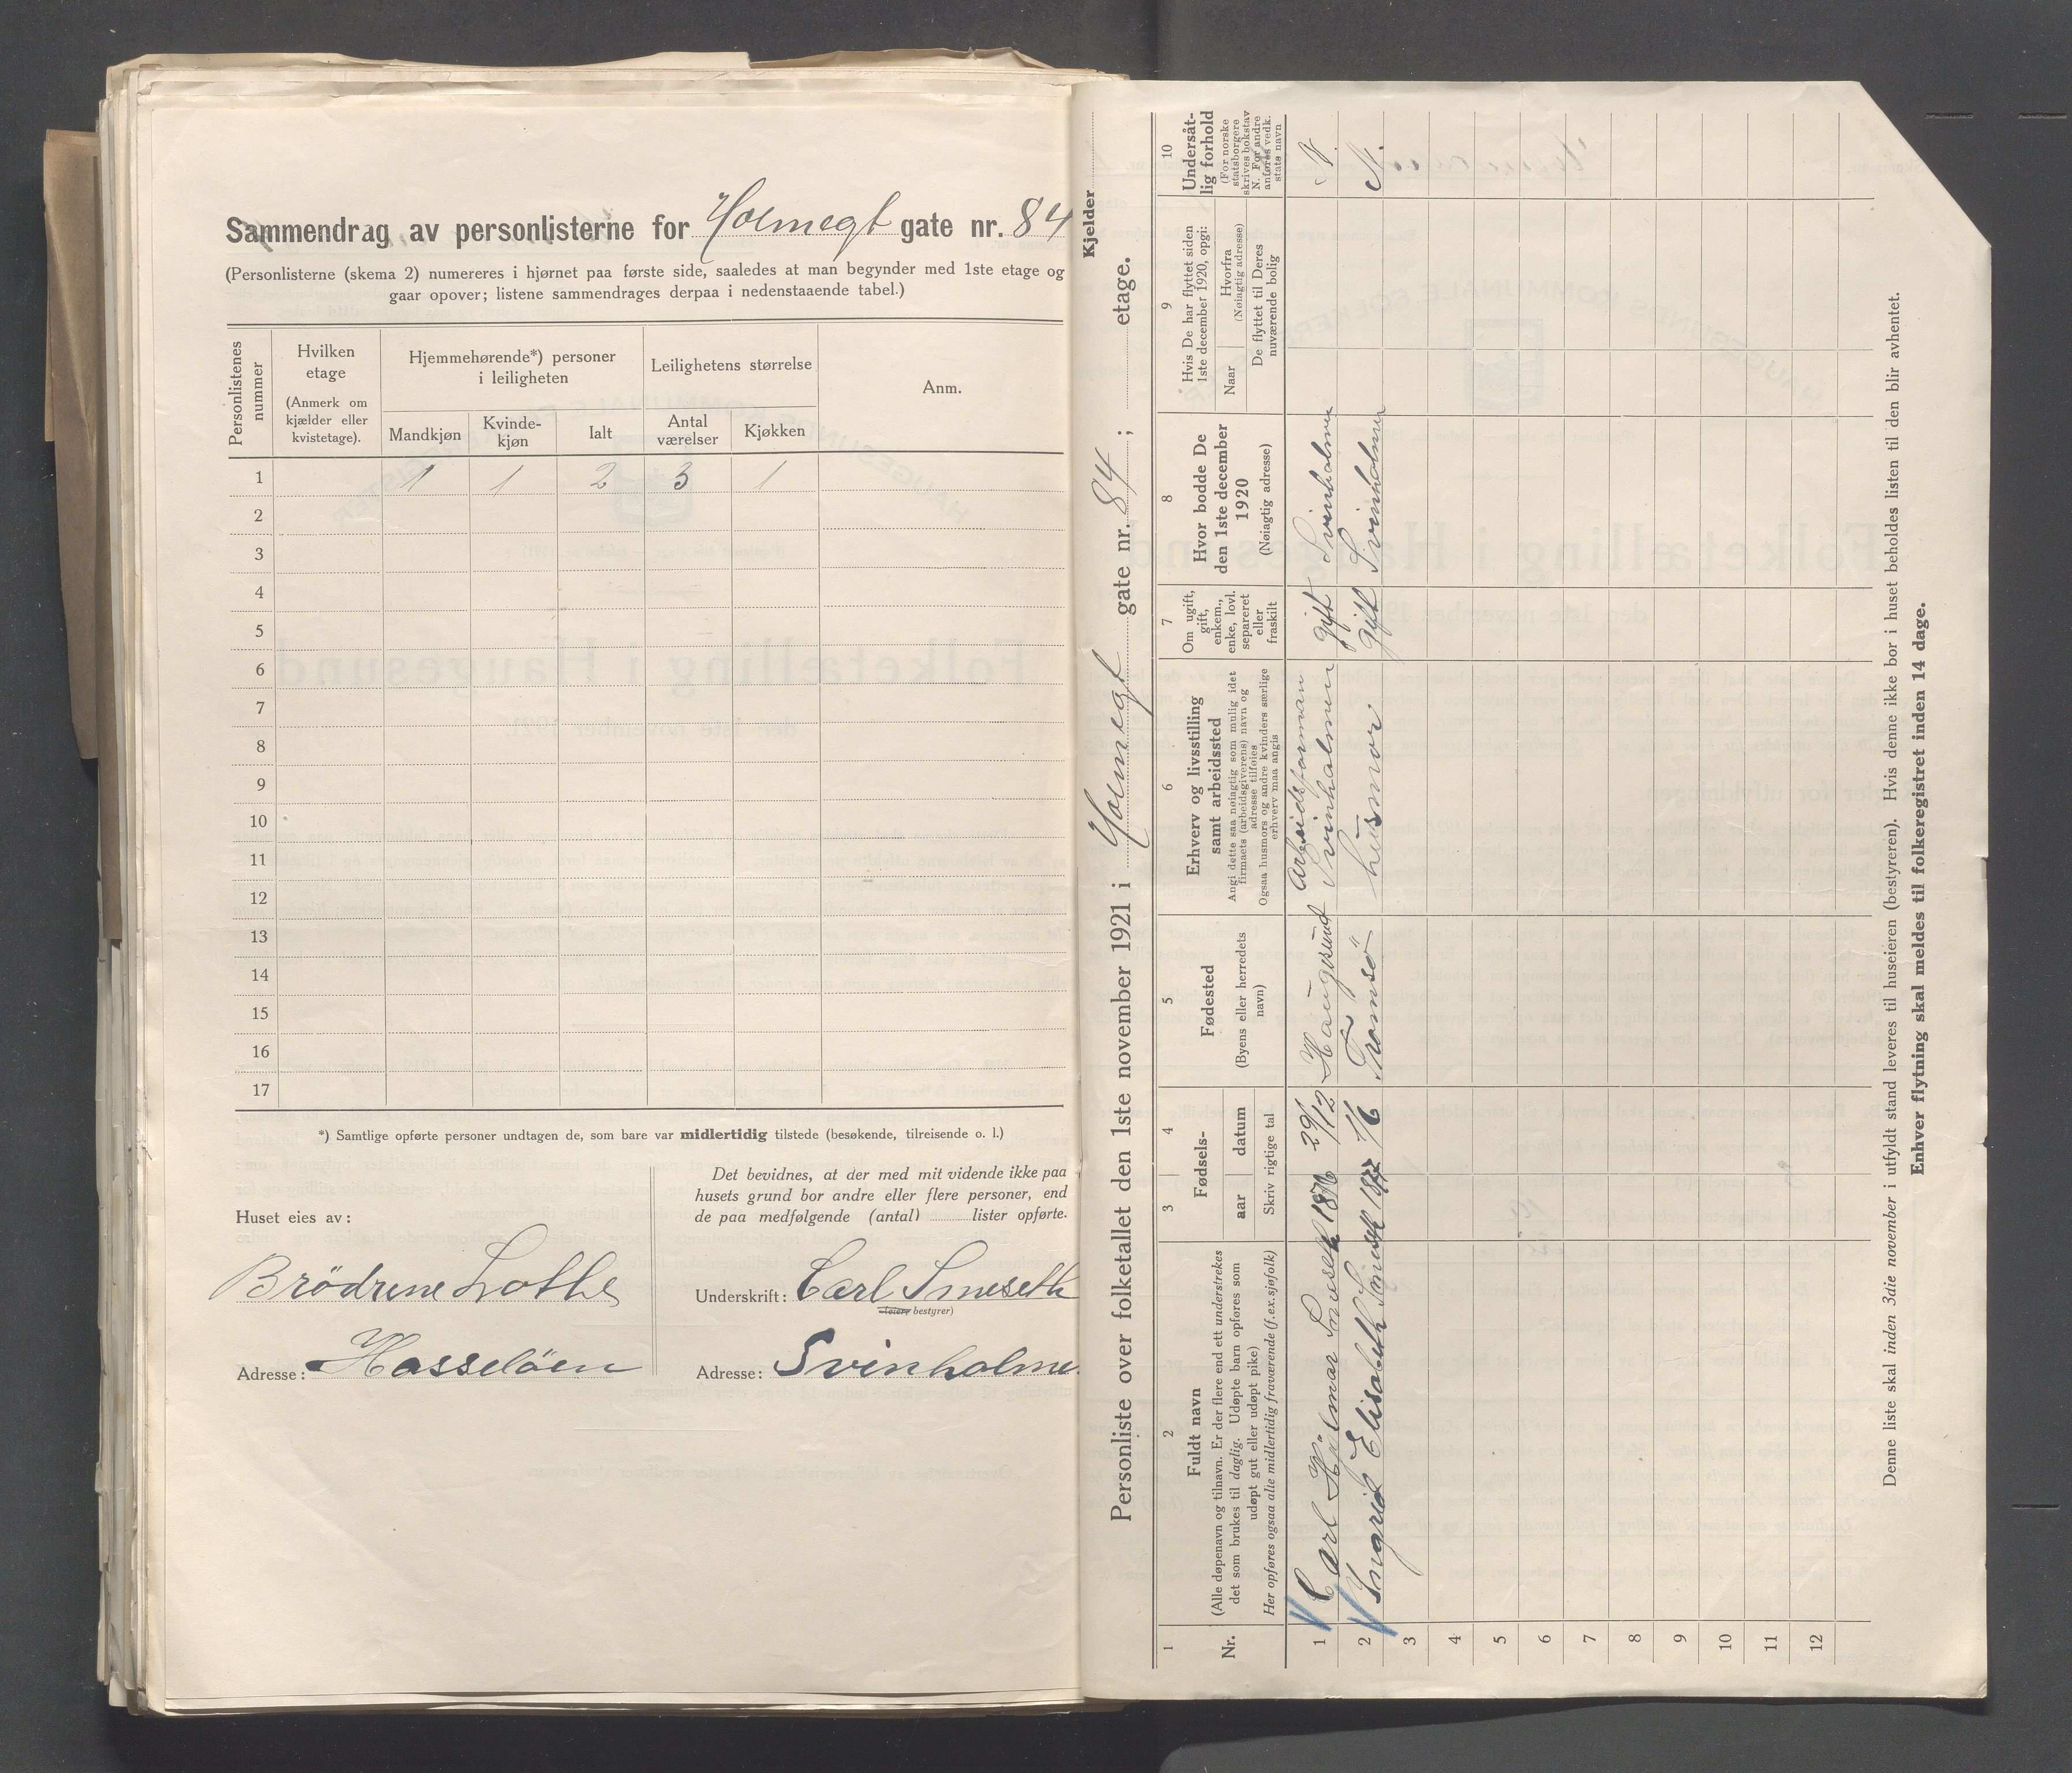 Sammendrag av personlisterne for Holmegt gate nr. 84
(Personlisterne (skema 2) numereres i hjørnet paa første side, saaledes at man begynder med 1ste etage og
gaar opover; listene sammendrages derpaa i nedenstaaende tabel.)
Personlistenes nummer
Hvilken etage
(Anmerk om kjælder eller kvistetage).
Hjemmehørende*) personer i leiligheten
Mandkjøn
Kvindekjøn
Ialt
Leilighetens størrelse
Antal værelser
Kjøkken
Anm.
1 1 1 2 3 1
2
3
4
5
6
7
8
9
10
11
12
13
14
15
16
17
*) Samtlige opførte personer undtagen de, som bare var midlertidig tilstede (besøkende, tilreisende o. l.)
Huset eies av:
Brödrene Lothe
Adresse: Hasselöen
Det bevidnes, at der med mit vidende ikke paa
husets grund bor andre eller flere personer, end
de paa medfølgende (antal) lister opførte.
Underskrift: Carl Smeseth
(eier, bestyrer)
Adresse: Svinholme
Personliste over folketallet den 1ste november 1921 i Holmegt gate nr. 84; etage.
Kjelder
1
Nr.
2
Fuldt navn
(Alle døpenavn og tilnavn. Er der flere end ett understrekes
det som brukes til daglig. Udøpte barn opføres som
udøpt gut eller udøpt pike)
Her opføres ogsaa alle midlertidig fraværende (f. ex. sjøfolk)
3 4
Fødsels-
aar datum
Skriv rigtige tal
5
Fødested
(Byens eller herredets navn)
6
Erhverv og livsstilling
samt arbeidssted
Angi dette saa nøiagtig som mulig idet
firmaets (arbeidsgiverens) navn og
adresse tilføies
Ogsaa husmors og andre kvinders særlige
erhverv maa angis
7
Om ugift,
gift,
enkem.,
enke, lovl.
separeret
eller
fraskilt
8
Hvor bodde De
den 1ste december
1920
(Nøiagtig adresse)
9
Hvis De har flyttet siden
1ste december 1920, opgi:
Naar
Hvorfra
(Nøiagtig adresse)
De flyttet til Deres
nuværende bolig
10
Undersåtlig forhold
(For norske
statsborgere
skrives bokstav
N. For andre
anføres vedk.
stats navn
1 Carl Hjalmar Smeseth 1876 29/12 Haugesund Arbeidsforman Svinholmen gift Svinholmen N.
2 Ingrid Elisabeth Smeseth 1877 1/6 Tromsö husmor gift Svinholmen N.
3
4
5
6
7
8
9
10
11
12
Denne liste skal inden 3die november i utfyldt stand leveres til huseieren (bestyreren). Hvis denne ikke bor i huset beholdes listen til den blir avhentet.
Enhver flytning skal meldes til folkeregistret inden 14 dage.